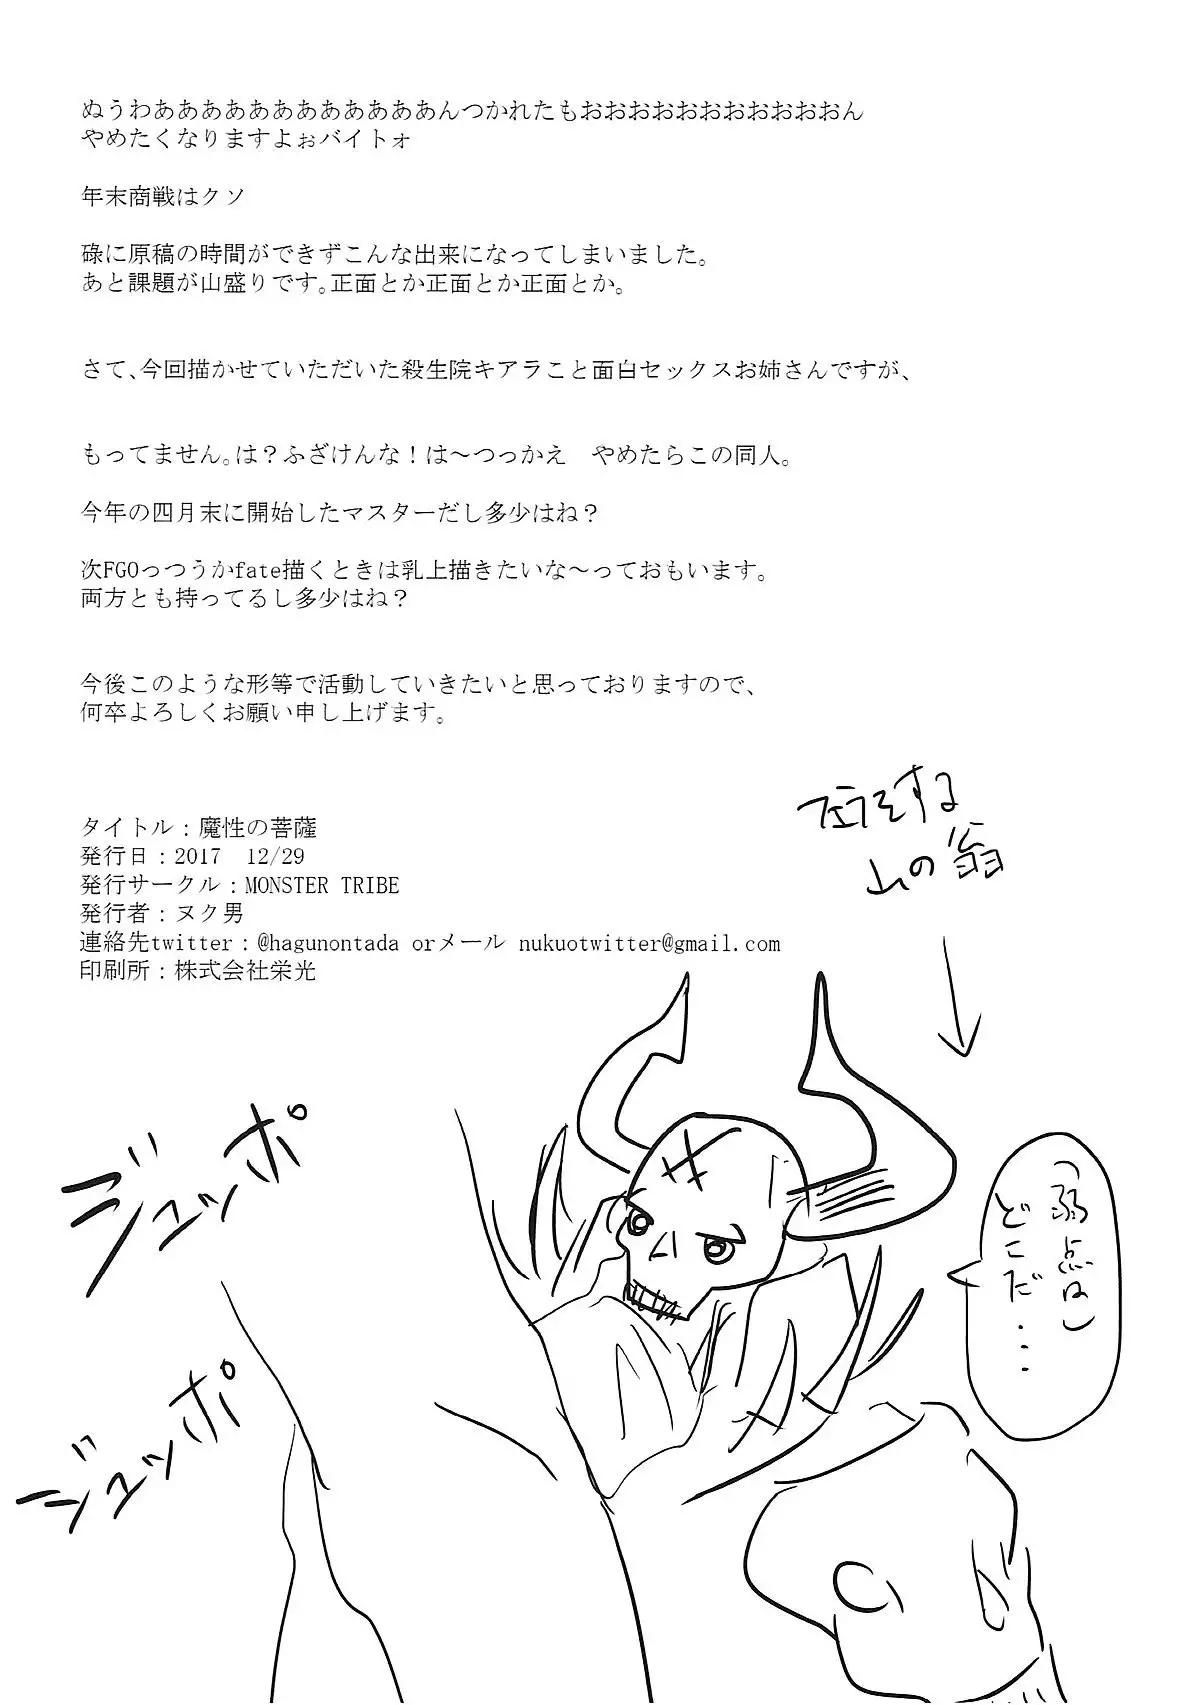 ぬうわああああああああああああんつかれたもおおおおおおおおおおおん
やめたくなりますよぉバイトォ
年末商戦はクソ
碌に原稿の時間ができずこんな出来になってしまいました。
あと課題が山盛りです。正面とか正面とか正面とか。
さて、今回描かせていただいた殺生院キアラこと面白セックスお姉さんですが、
もってません。は？ふざけんな！は～つっかえ　やめたらこの同人。
今年の四月末に開始したマスターだし多少はね？
次FGOっつうかfate描くときは乳上描きたいな～っておもいます。
両方とも持ってるし多少はね？
今後このような形等で活動していきたいと思っておりますので、
何卒よろしくお願い申し上げます。
タイトル：魔性の菩薩
発行日：2017　12/29
発行サークル：MONSTER TRIBE
発行者：ヌク男
連絡先twitter：@hagunontada orメール nukuotwitter@gmail.com
印刷所：株式会社栄光
フェラをする
山の翁
(弱点は)
どこだ・・・
ジュッポ
ジュッポ